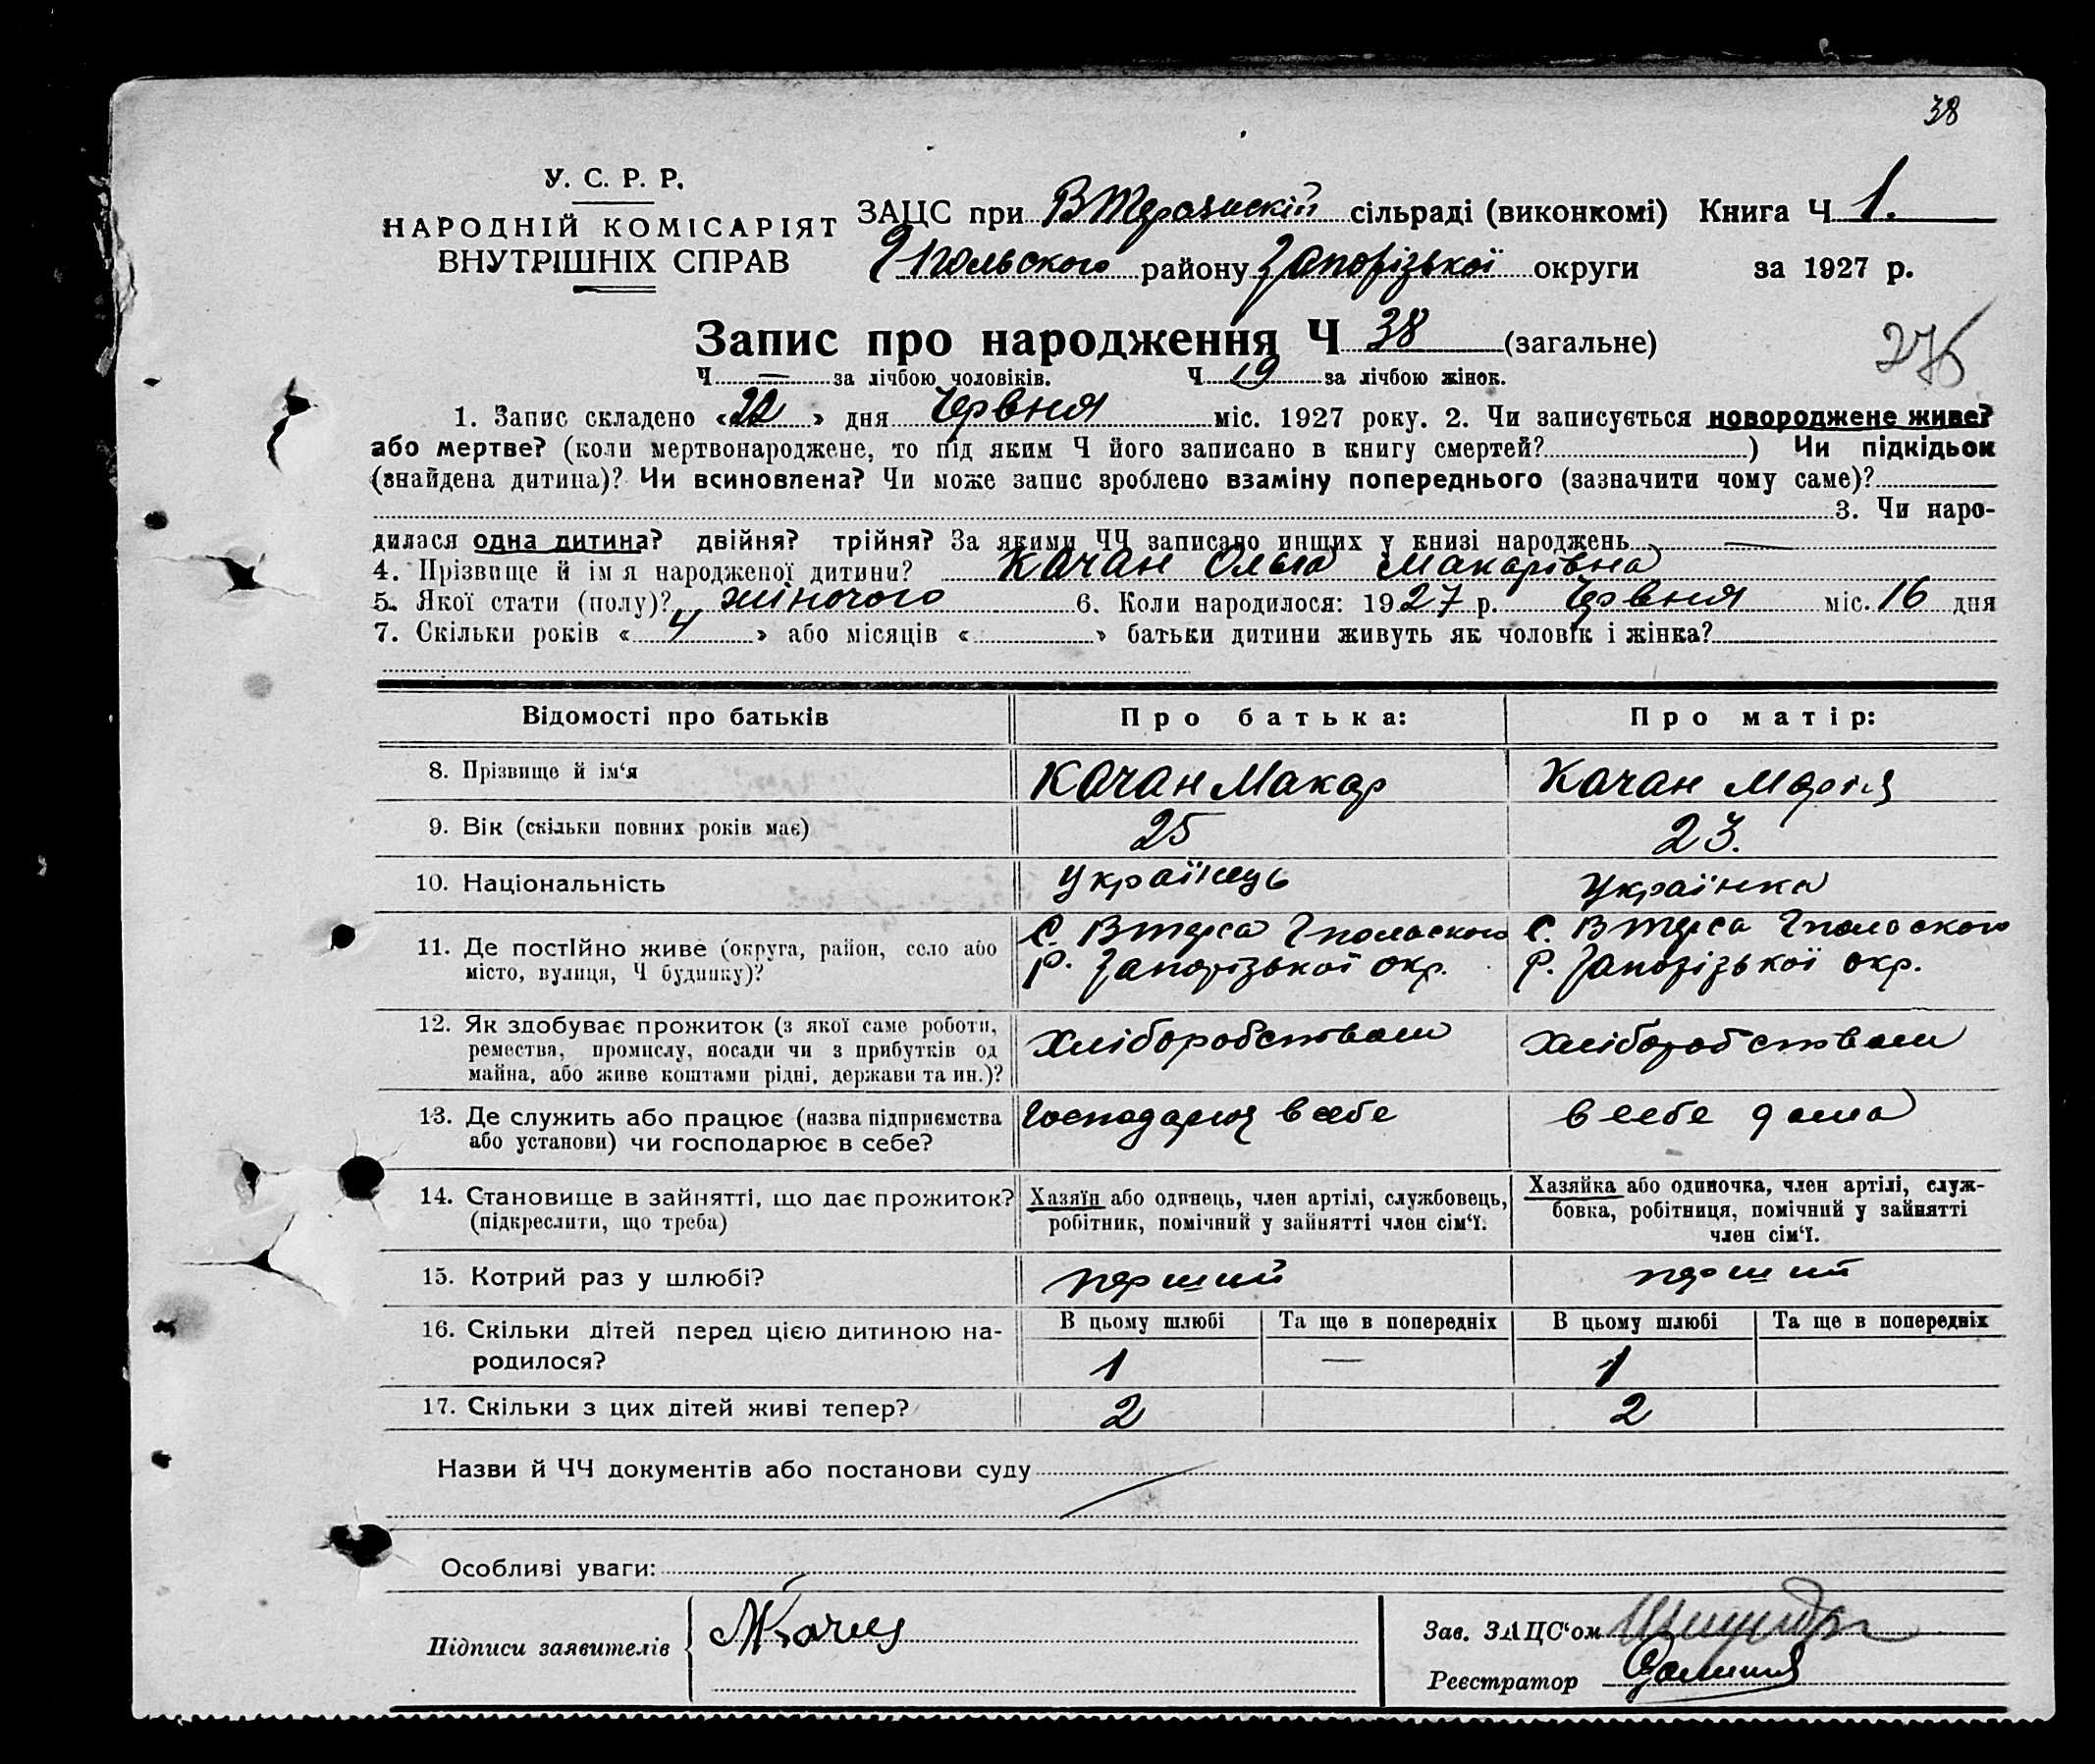 38
У. С. Р. Р.
НАРОДНІЙ КОМІСАРІЯТ
ВНУТРІШНІХ СПРАВ
ЗАЦС при сільраді (виконкомі) Книга Ч 1.
Гпольского району Запорізької округи за 1927 р.
Запис про народження Ч 38 (загальне)
276
Ч — за лічбою чоловіків. Ч 19 за лічбою жінок.
1. Запис складено «22» дня Червня міс. 1927 року. 2. Чи записується новороджене живе?
або мертве? (коли мертвонароджене, то під яким Ч його записано в книгу смертей? ) Чи підкідьок
(знайдена дитина)? Чи всиновлена? Чи може запис зроблено взаміну попереднього (зазначити чому саме)?
3. Чи наро-
дилася одна дитина? двійня? трійня? За якими ЧЧ записано инших у книзі народжень —
4. Прізвище й ім я народженої дитини? Качан Ольга Макарівна
5. Якої стати (полу)? жіночого 6. Коли народилося: 1927 р. Червня міс. 16 дня
7. Скільки років «4» або місяців « » батьки дитини живуть як чоловік і жінка?
Відомості про батьків Про батька: Про матір:
8. Прізвище й ім‘я Качан Макар Качан Марія
9. Вік (скільки повних років має) 25 23.
10. Національність Українець Українка
11. Де постійно живе (округа, район, село або С. ВТерса Гпольского С. ВТерса Гпольского
місто, вулиця, Ч будинку)? Р. Запорізької окр. Р. Запорізької окр.
12. Як здобуває прожиток (з якої саме роботи, Хліборобством Хліборобством
ремества, промислу, посади чи з прибутків од
майна, або живе коштами рідні, держави та ин.)?
13. Де служить або працює (назва підприємства Господарює в себе в себе дома
або установи) чи господарює в себе?
14. Становище в зайнятті, що дає прожиток? Хазяїн або одинець, член артілі, службовець, Хазяйка або одиночка, член артілі, служ-
(підкреслити, що треба) робітник, помічний у зайнятті член сім‘ї. бовка, робітниця, помічний у зайнятті
член сім‘ї.
15. Котрий раз у шлюбі? перший перший
16. Скільки дітей перед цією дитиною на- В цьому шлюбі Та ще в попередніх В цьому шлюбі Та ще в попередніх
родилося? 1 — 1
17. Скільки з цих дітей живі тепер? 2 2
Назви й ЧЧ документів або постанови суду
Особливі уваги:
Підписи заявителів
Зав. ЗАЦС‘ом
Реєстратор